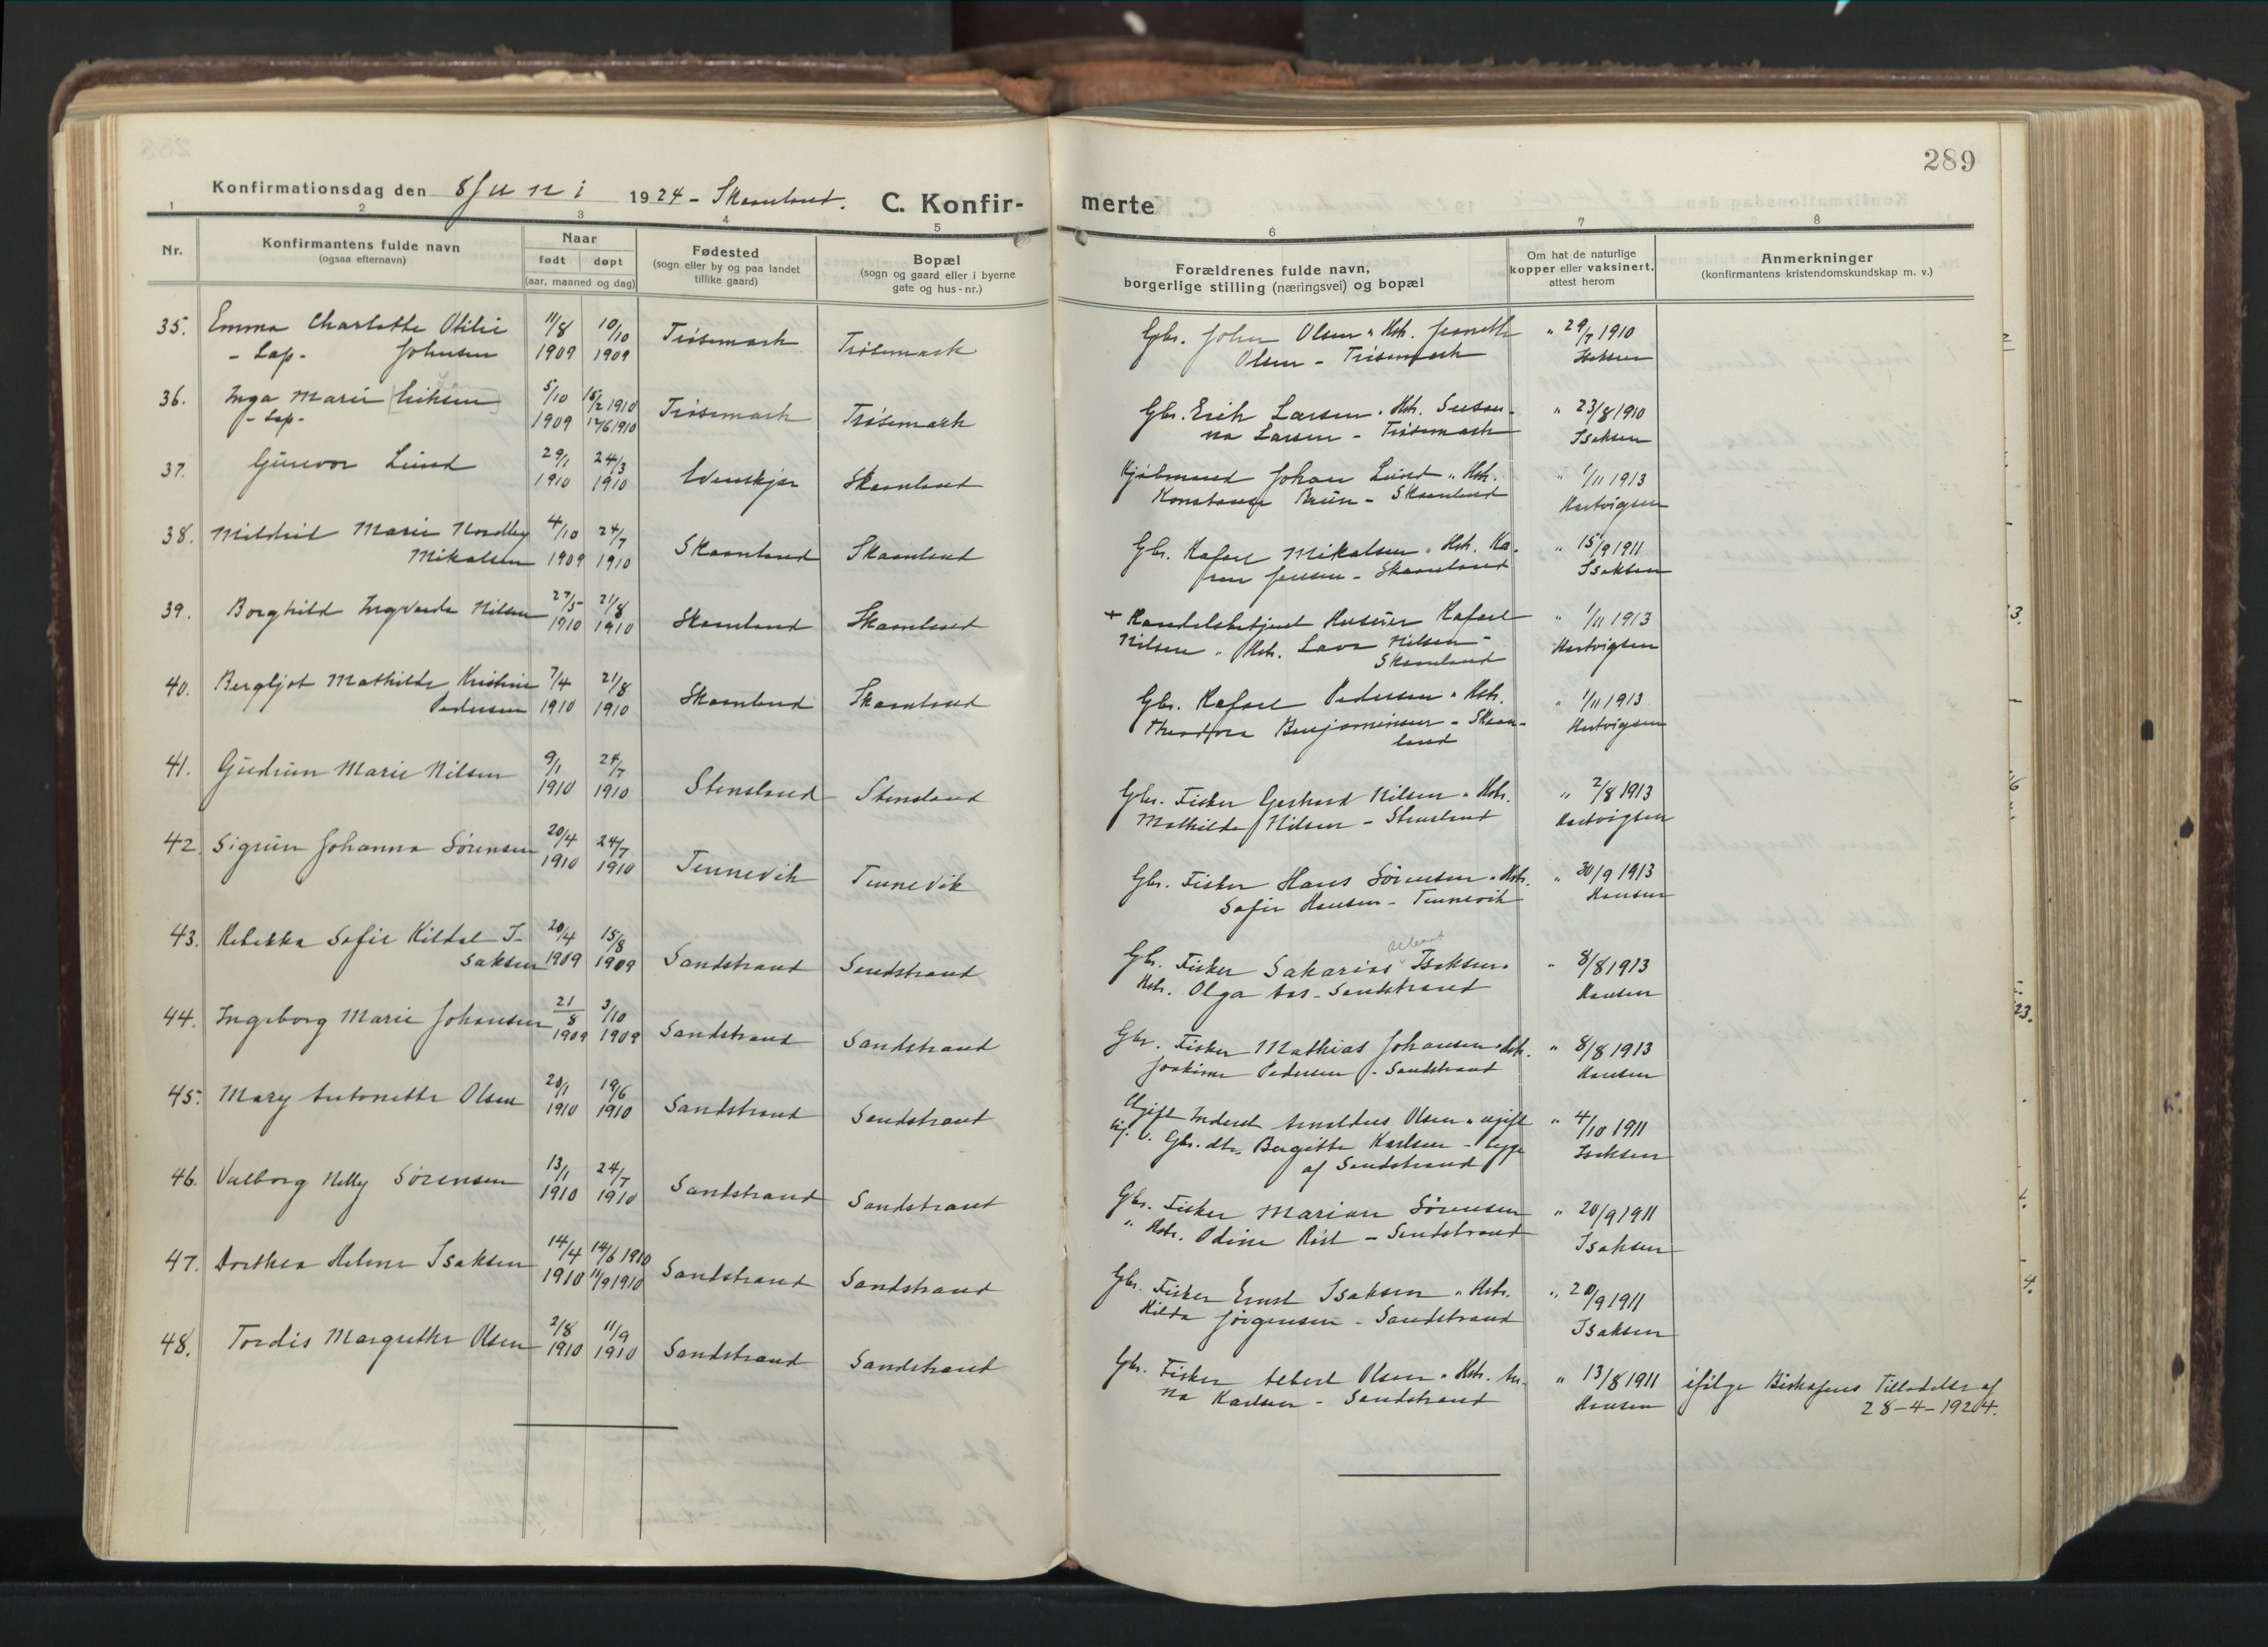 289
Konfirmationsdag den 8 Juni 1924 - Skaanland.
C. Konfir-
merte
1 2 3 4 5 6 7 8
Nr.
Konfirmantens fulde navn
(ogsaa efternavn)
Naar
født døpt
(aar, maaned og dag)
Fødested
(sogn eller by og paa landet
tillike gaard)
Bopæl
(sogn og gaard eller i byerne
gate og hus-nr.)
Forældrenes fulde navn,
borgerlige stilling (næringsvei) og bopæl
Om hat de naturlige
kopper eller vaksinert,
attest herom
Anmerkninger
(konfirmantens kristendomskundskap m. v.)
35. Emma Charlotte Otilie 11/8 10/10 Trøsemark Trøsemark Gbr. Johan Olsen " Hstr. " 29/7 1910
- Lap - Johnsen 1909 1909 Olsen - Trøsemark Isaksen
36. Inga Marie Eriksen 5/10 15/2 1910 Trøsemark Trøsemark Gbr. Erik Larsen " Hstr. Susan- " 23/8 1910
- Lap - 1909 12/6 1910 na Larsen - Trøsemark Isaksen
37. Gunvor Lund 29/1 24/3 Evenskjær Skaanland Kjøbmand Johan Lund " Hstr. " 1/11 1913
1910 1910 Konstance Bruun - Skaanland Hartvigsen
38. Mildrid Marie Nordby 4/10 24/7 Skaanland Skaanland Gbr. Rafael Mikalsen " Hstr. Ka- " 15/9 1911
Mikalsen 1909 1910 ren Jensen - Skaanland Isaksen
39. Borghild Ingvarda Nilsen 27/5 21/8 Skaanland Skaanland + Handelsbetjent Husmor Rafael " 1/11 1913
1910 1910 Nilsen " Hstr. Lava Nilsen - Hartvigsen
Skaanland
40. Bergljot Mathilde Kristine 7/4 21/8 Skaanland Skaanland Gbr. Rafael Pedersen " Hstr. " 1/11 1913
Pedersen 1910 1910 Theodora Benjaminsen - Skaan- Hartvigsen
land
41. Gudrun Marie Nilsen 9/1 24/7 Stensland Stensland Gbr. Fisker Gerhard Nilsen " Hstr. " 2/8 1913
1910 1910 Mathilda Nilsen - Stensland Hartvigsen
42. Sigrun Johanna Sørensen 20/4 24/7 Tennevik Tennevik Gbr. Fisker Hans Sørensen " Hstr. " 30/9 1913
1910 1910 Sofie Hansen - Tennevik Hansen
43. Rebekka Sofie Kildal I- 20/4 15/8 Sandstrand Sandstrand Gbr. Fisker Sakarias Isaksen " " 8/8 1913
saksen 1909 1909 Hstr. Olga Aas - Sandstrand Hansen
44. Ingeborg Marie Johansen 21/8 3/10 Sandstrand Sandstrand Gbr. Fisker Mathias Johansen " Hstr. " 8/8 1913
1909 1909 Joakime Pedersen - Sandstrand Hansen
45. Mary Antonette Olsen 20/1 19/6 Sandstrand Sandstrand Ugift Inderst Arnoldus Olsen " ugift " 4/10 1911
1910 1910 Gbr. dtr. Bergitte Karlsen - begge Isaksen
af Sandstrand
46. Valborg Nelly Sørensen 13/1 24/7 Sandstrand Sandstrand Gbr. Fisker Marion Sørensen " 20/9 1911
1910 1910 " Hstr. Odine Røst - Sandstrand Isaksen
47. Dorthea Helene Isaksen 14/4 14/6 1910 Sandstrand Sandstrand Gbr. Fisker Ernst Isaksen " Hstr. " 20/9 1911
1910 11/9 1910 Hilda Jørgensen - Sandstrand Isaksen
48. Tordis Margrethe Olsen 2/8 11/9 Sandstrand Sandstrand Gbr. Fisker Albert Olsen " Hstr. An- " 13/8 1911 ifølge Biskopens Tilladelse af
1910 1910 na Karlsen - Sandstrand Hansen 28-4-1924.